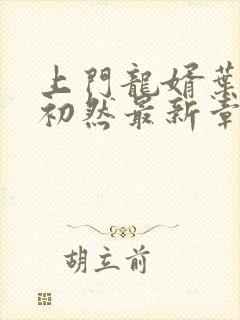 上門龍婿葉
初然最新章
胡立前